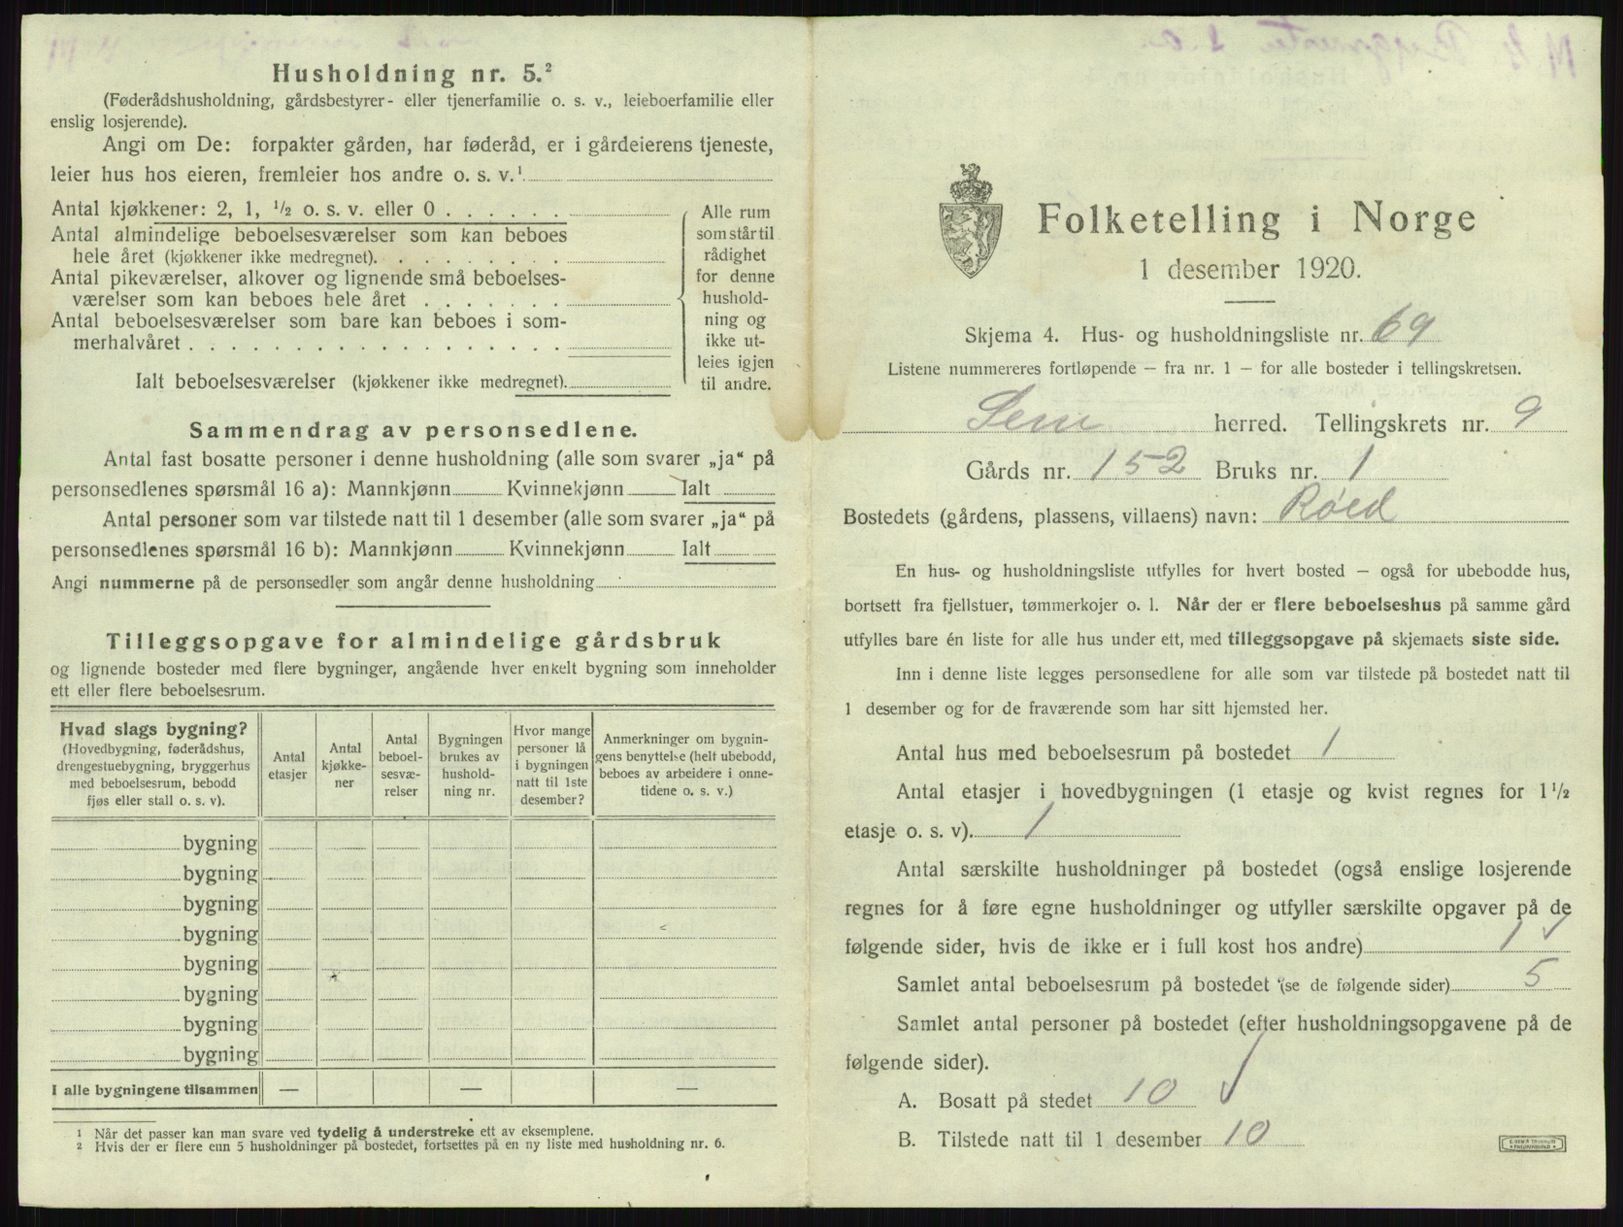 Husholdning nr. 5.²
(Føderådshusholdning, gårdsbestyrer- eller tjenerfamilie o. s. v., leieboerfamilie eller
enslig losjerende).
Angi om De: forpakter gården, har føderåd, er i gårdeierens tjeneste,
leier hus hos eieren, fremleier hos andre o. s. v.¹
Antal kjøkkener: 2, 1, ½ o. s. v. eller 0
Antal almindelige beboelsesværelser som kan beboes
hele året (kjøkkener ikke medregnet)
Antal pikeværelser, alkover og lignende små beboelses-
værelser som kan beboes hele året
Antal beboelsesværelser som bare kan beboes i som-
merhalvåret
Ialt beboelsesværelser (kjøkkener ikke medregnet)
Alle rum
som står til
rådighet
for denne
hushold-
ning og
ikke ut-
leies igjen
til andre.
Sammendrag av personsedlene.
Antal fast bosatte personer i denne husholdning (alle som svarer „ja“ på
personsedlenes spørsmål 16 a): Mannkjønn Kvinnekjønn Ialt
Antal personer som var tilstede natt til 1 desember (alle som svarer „ja“ på
personsedlenes spørsmål 16 b): Mannkjønn Kvinnekjønn Ialt
Angi nummerne på de personsedler som angår denne husholdning
Tilleggsopgave for almindelige gårdsbruk
og lignende bosteder med flere bygninger, angående hver enkelt bygning som inneholder
ett eller flere beboelsesrum.
Hvad slags bygning?
(Hovedbygning, føderådshus,
drengestuebygning, bryggerhus
med beboelsesrum, bebodd
fjøs eller stall o. s. v).
Antal
etasjer
Antal
kjøkke-
ner
Antal
beboel-
sesvæ-
relser
Bygningen
brukes av
hushold-
ning nr.
Hvor mange
personer lå
i bygningen
natt til 1ste
desember?
Anmerkninger om bygnin-
gens benyttelse (helt ubebodd,
beboes av arbeidere i onne-
tidene o. s. v.)
bygning
bygning
bygning
bygning
bygning
bygning
bygning
bygning
I alle bygningene tilsammen — — —
¹ Når det passer kan man svare ved tydelig å understreke ett av eksemplene.
² Hvis der er flere enn 5 husholdninger på bostedet, fortsettes på en ny liste med husholdning nr. 6.
Folketelling i Norge
1 desember 1920.
Skjema 4. Hus- og husholdningsliste nr. 69
Listene nummereres fortløpende — fra nr. 1 — for alle bosteder i tellingskretsen.
Sem herred. Tellingskrets nr. 9
Gårds nr. 152 Bruks nr. 1
Bostedets (gårdens, plassens, villaens) navn: Røed
En hus- og husholdningsliste utfylles for hvert bosted — også for ubebodde hus,
bortsett fra fjellstuer, tømmerkojer o. l. Når der er flere beboelseshus på samme gård
utfylles bare én liste for alle hus under ett, med tilleggsopgave på skjemaets siste side.
Inn i denne liste legges personsedlene for alle som var tilstede på bostedet natt til
1 desember og for de fraværende som har sitt hjemsted her.
Antal hus med beboelsesrum på bostedet 1
Antal etasjer i hovedbygningen (1 etasje og kvist regnes for 1½
etasje o. s. v). 1
Antal særskilte husholdninger på bostedet (også enslige losjerende
regnes for å føre egne husholdninger og utfyller særskilte opgaver på de
følgende sider, hvis de ikke er i full kost hos andre) 1 ✓
Samlet antal beboelsesrum på bostedet (se de følgende sider) 5
Samlet antal personer på bostedet (efter husholdningsopgavene på de
følgende sider).
A. Bosatt på stedet 10 ✓
B. Tilstede natt til 1 desember 10